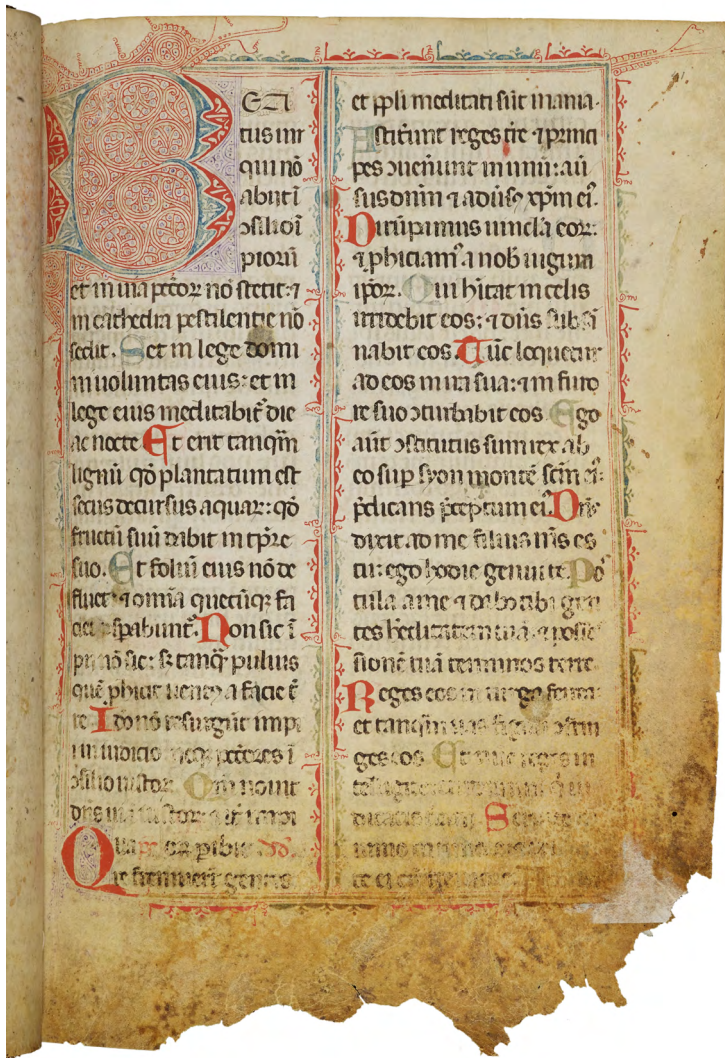 BEA
tus uir
qui nō
abiit ī
ↄsilio ī
piorū
et in uia pctōꝝ nō stetit: ⁊
in cathedra pestilentie nō
sedit. Set in lege domi
ni uoluntas eius: et in
lege eius meditabit᷑ die
ac nocte Et erit tanqm̄
lignū qđ plantatum est
secus decursus aquaꝝ: qđ
fructū suū dabit in tp̄re
suo. Et foliū eius nō de
fluet: ⁊ omīa quecūqꝫ fa
ciet ꝓspabunt᷑. Non sic ī
pii nō sic: sꝫ tanqᷓ puluis
quē ꝓhicit uentꝰ a facie t̄
re Ido nō resurgūt impi
i in iudicio neqꝫ pctōres ī
ↄsilio iustoꝝ. Qm̄ nouit
dn̄s uia iustoꝝ ⁊ it̄
Qua
re fremuerūt gentes
et ppl̄i meditati sūt inania.
Astiterunt reges tr̄e ⁊ princi
pes ↄuenerunt in unū: aū
sus dn̄m ⁊ aduᷤsꝰ xp̄m eiꝰ.
Dirūpamus uincl̄a eoꝝ:
⁊ ꝓhiciamᷤ a nob̄ iugum
ipoꝝ. Qui hītat in celis
irridebit eos: ⁊ dn̄s subsā
nabit eos. Tūc loquetur
ad eos in ira sua: ⁊ in furo
re suo ↄturbabit eos Ego
aūt ↄstitutus sum rex ab
eo sup syon montē scm̄ eiꝰ
p̄dicans p̄ceptum eiꝰ. Dn̄s
dixit ad me filius m̄s es
tu: ego hodie genui te. Pos
tula a me ⁊ dabo tibi gen
tes h̄editatem tuā: ⁊ posses
sionē tuā terminos terre
Reges eos in uirga ferrea:
et tanqm̄ uas figuli ↄfrin
ges eos Et nunc reges in
telligite
Seruite